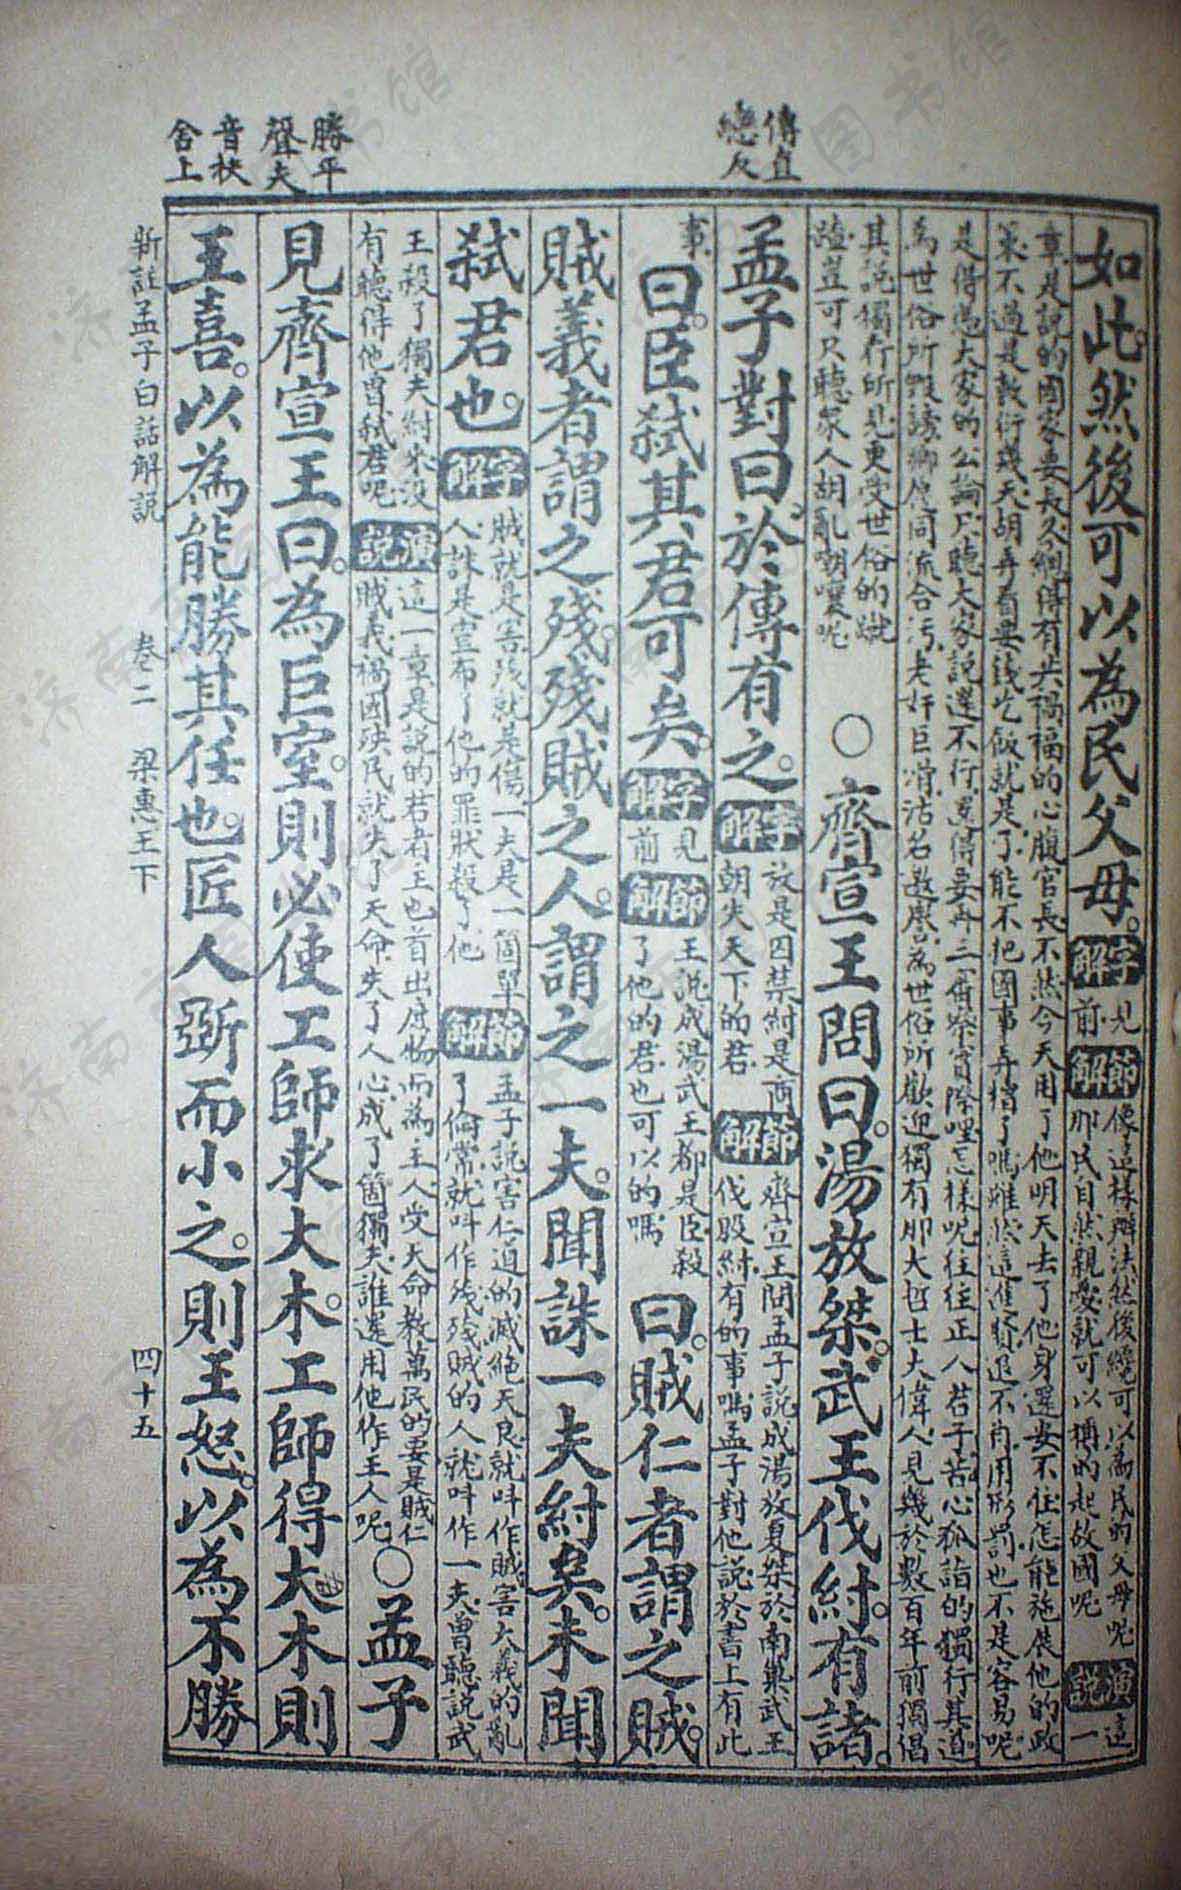 傳直
戀反
勝平
聲夫
音扶
舍上
如此。然後可以為民父母。字解 見前 節解 像這樣辦法然後纔可以為民的父母呢
那民自然親愛就可以稱的起故國呢 演說 這一
章是說的國家要長久總得有共禍福的心腹官長不然今天用了他明天去了他身還安不住怎能施展他的政
策不過是敷衍幾天胡弄着要錢吃飯就是了能不把國事弄糟了嗎雖然這進賢退不肖用刑罰也不是容易呢
是得憑大家的公論只聽大家說還不行還得要再三審察實際哩怎樣呢往往正人君子苦心孤詣的獨行其道
為世俗所毀謗鄉愿同流合污老奸巨猾沽名邀康為世俗所歡迎獨有那大哲士大偉人見幾於數百年前獨倡
其說獨行所見更受世俗的蹴
躂豈可只聽眾人胡亂嘲嚷呢
○齊宣王問曰。湯放桀。武王伐紂。有諸。
孟子對曰。於傳有之。字解 放是囚禁紂是商
朝失天下的君 節解 齊宣王問孟子說成湯放夏桀於南巢武王
伐殷紂有的事嗎孟子對他說於書上有此
事 曰。臣弒其君可矣。字解 見前 節解 王說成湯武王都是臣殺
了他的君也可以的嗎 曰。賊仁者謂之賊。
賊義者謂之殘。殘賊之人。謂之一夫。聞誅一夫紂矣。未聞
弒君也。字解 賊就是害殘就是傷一夫是一個單
人誅是宣布了他的罪狀殺了他 節解 孟子說害仁道的滅絕天良就叫作賊害大義的亂
了倫常就叫作殘殘賊的人就叫作一夫曾聽說武
王殺了獨夫紂來沒
有聽得他曾弒君呢 演說 這一章是說的君者王也首出庶物而為主人受大命教萬民的要是賊仁
賊義禍國殃民就失了天命失了人心成了個獨夫誰還用他作王人呢 ○孟子
見齊宣王曰。為巨室。則必使工師求大木。工師得大木則
王喜。以為能勝其任也。匠人斲而小之。則王怒。以為不勝
新註孟子白話解說 卷二 梁惠王下 四十五